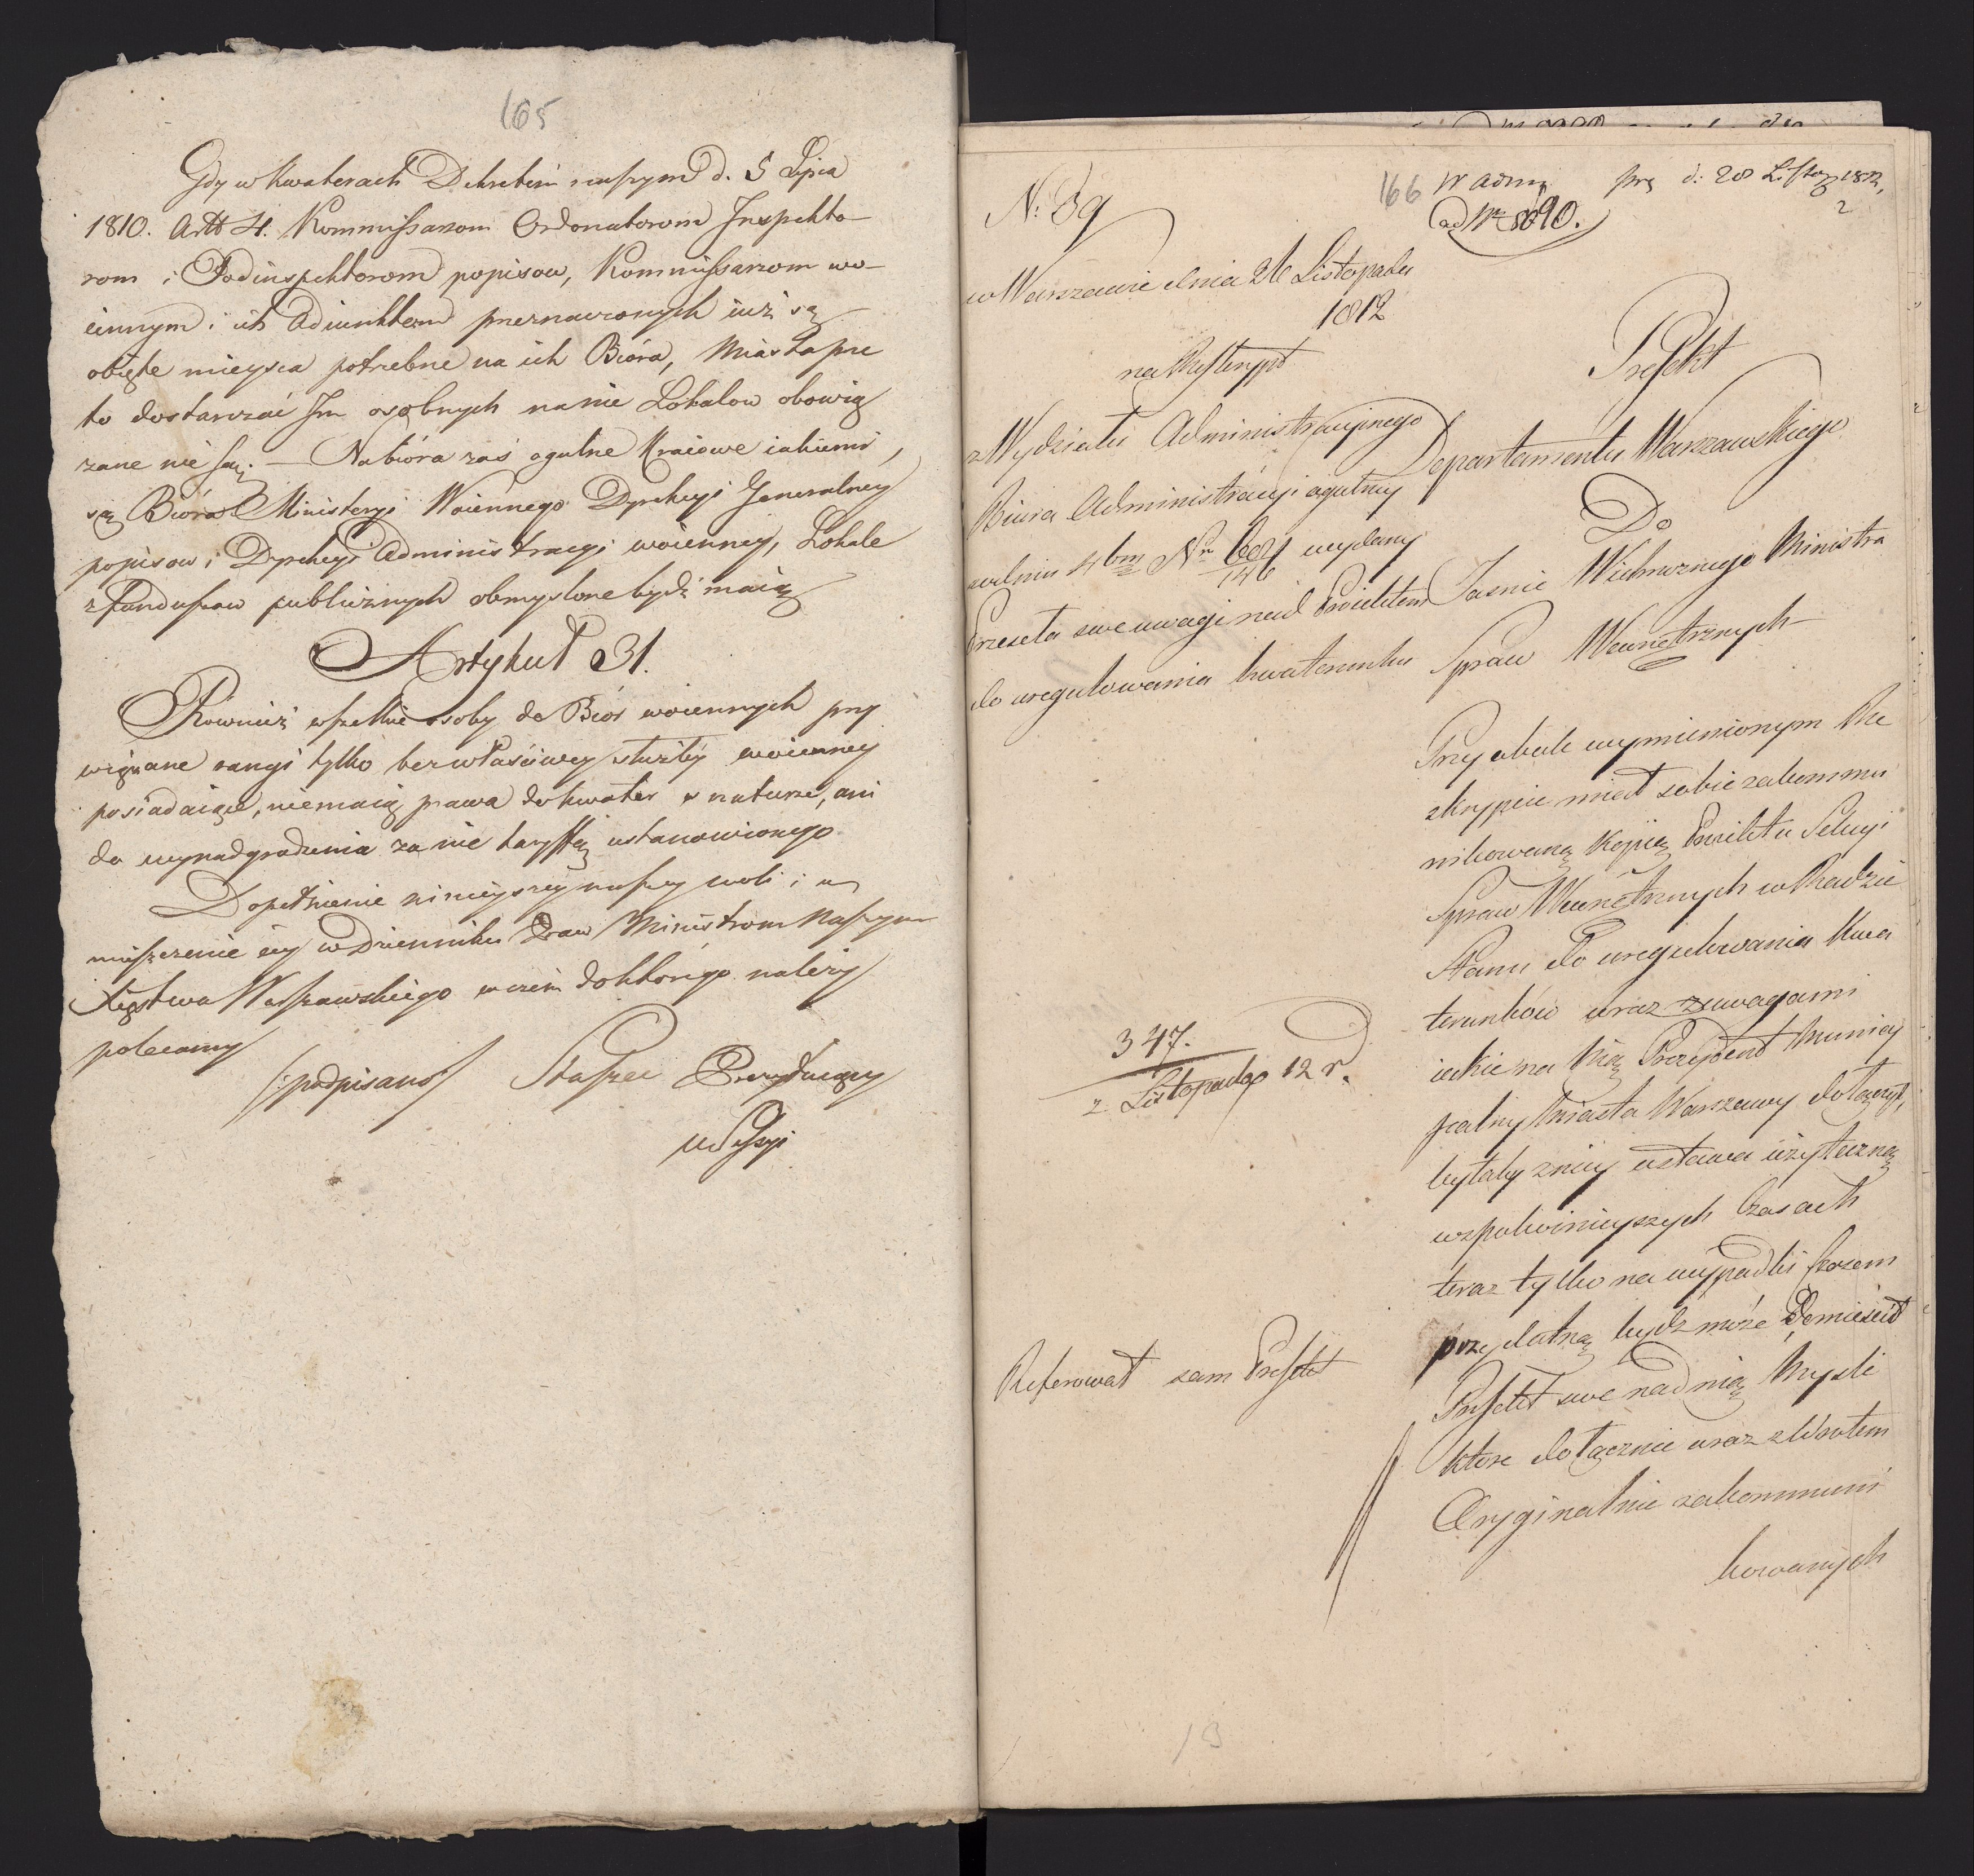 165
Gdy w kwaterach Dekretem naszym d. 5 Lipca
1810. Artt 4. Kommissarzom Ordonatorom Inspekto-
rom i Podinspektorom popisow, Kommissarzom wo-
iennym i ich Adiunktom przeznaczonych iuż są
obięte mieysca potrzebne na ich Bióra, Miasta prze
to dostarczać Im osobnych na nie Lokalow obowią
zane nie są. — Na bióra zaś ogulne Kraiowe iakiemi,
są Bióra Ministeryi Woiennego Dyrekcyi Generalney
popisow i Dyrekcyi Administracyi woienney, Lokale
z Funduszow publicznych obmyslone bydź maią
Artykuł 31.
Rownież wszelkie osoby do Biór woiennych przy
wiązane rangi tylko bez właściwey służby woienney
posiadaiące, niemaią prawa do kwater w naturze, ani
do wynadgrodzenia za nie taryffą ustanowionego
Dopełnienie ninieyszey naszey woli i u
mieszczenie iey w Dzienniku Praw Ministrom Naszym
Xięstwa Warszawskiego w czem do którego należy
polecamy
/:podpisano:/ Staszec Prezyduiący
w Sekcyi
166 W Adm prz d: 28 Listop 1812,
2
ad Nr 8690.
N: 39
w Warszawie dnia 26 Listopada
1812
na Reskrypt
z Wydziału Administracyinego
Biura Administracyi ogulney
z dnia 4bra Nro 6021/146 wydany
Przeseła swe uwagi nad Proiektem
do uregulowania kwaterunku
347.
2 Listopada 12 r.
Referował sam Prefekt
Prefekt
Departamentu Warszawskiego
Do
Jasnie Wielmoznego Ministra
Spraw Wewnętrznych
Przy obok wymienionym Re
skrypcie miał sobie zakommu
nikowaną Kopią Proiektu Sekcyi
Spraw Wewnętrznych w Radzie
Stanu do uregulowania Kwa
terunków wraz z uwagami
iakie na nią Prezydent Munici
palny Miasta Warszawy dołączył,
byłaby z niey ustawa użyteczną
w spokoinieyszych Czasach
teraz tylko na wypadki czasem
przydatną bydź może Pomieścił
Prefekt swe nad nią Mysli
ktore dołącznie wraz z zwrotem
Oryginalnie zakommuni
kowanych